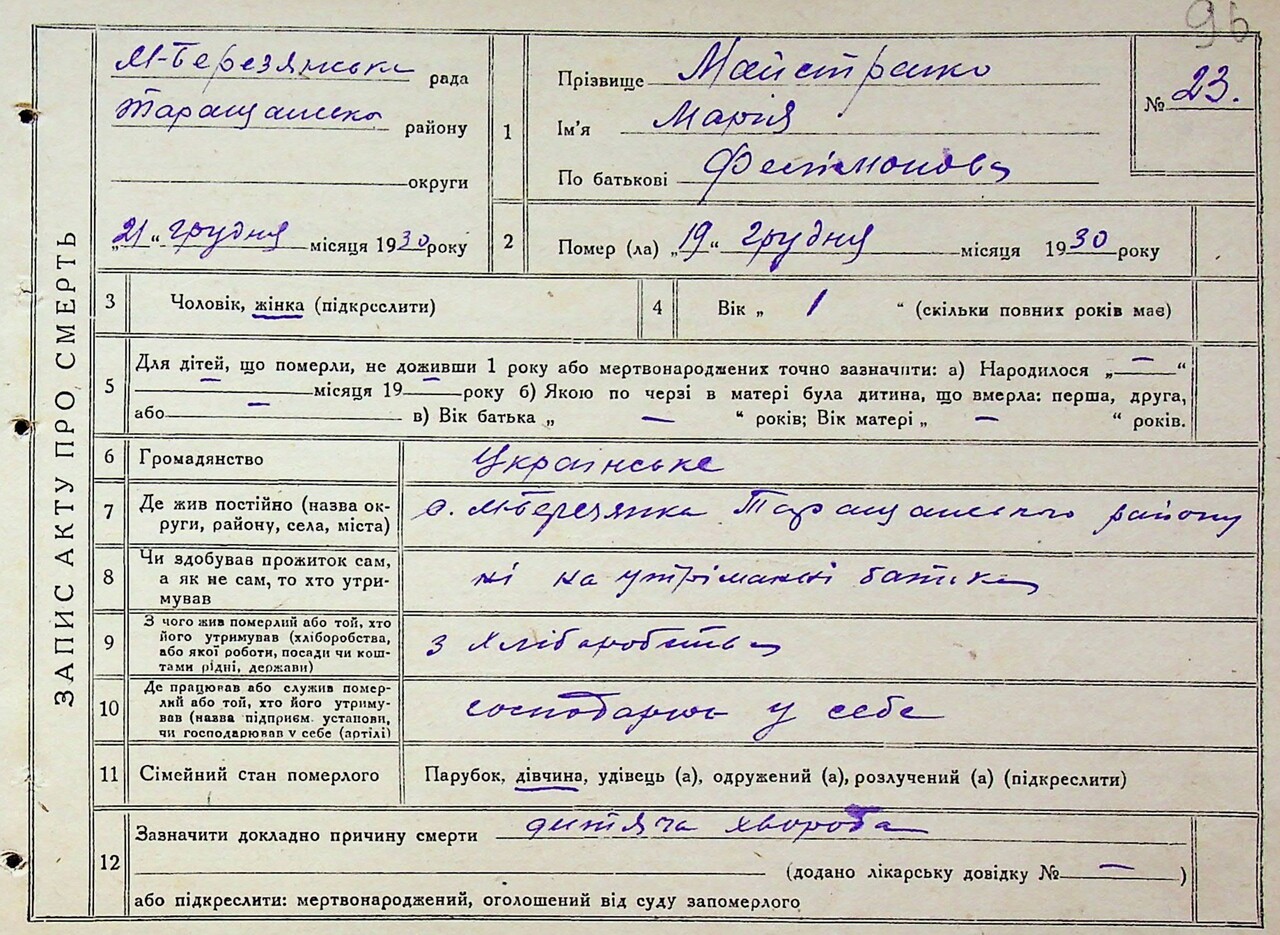 96
ЗАПИС АКТУ ПРО СМЕРТЬ
М-Березянська рада
Таращансько району
округи
„21“ грудня місяця 1930 року
1
Прізвище Майстренко
Ім'я Марія
По батькові
№ 23.
2 Помер (ла) „19“ грудня місяця 1930 року
3 Чоловік, жінка (підкреслити)
4 Вік „ 1 “ (скільки повних років має)
5 Для дітей, що померли, не доживши 1 року або мертвонароджених точно зазначити: а) Народилося „ — “
— місяця 19 — року б) Якою по черзі в матері була дитина, що вмерла: перша, друга,
або — в) Вік батька „ — “ років; Вік матері „ — “ років.
6 Громадянство Українське
7 Де жив постійно (назва ок-
руги, району, села, міста)
с. М-Березянка Таращанського району
8 Чи здобував прожиток сам,
а як не сам, то хто утри-
мував
ні на утріманні батика
9 З чого жив померлий або той, хто
його утримував (хліборобства,
або якої роботи, посади чи кош-
тами рідні, держави)
з хліборобства
10 Де працював або служив помер-
лий або той, хто його утриму-
вав (назва підприєм. установи,
чи господарював у себе (артілі)
господарює у себе
11 Сімейний стан померлого Парубок, дівчина, удівець (а), одружений (а), розлучений (а) (підкреслити)
12 Зазначити докладно причину смерти дитяча хвороба
(додано лікарську довідку № — )
або підкреслити: мертвонароджений, оголошений від суду запомерлого